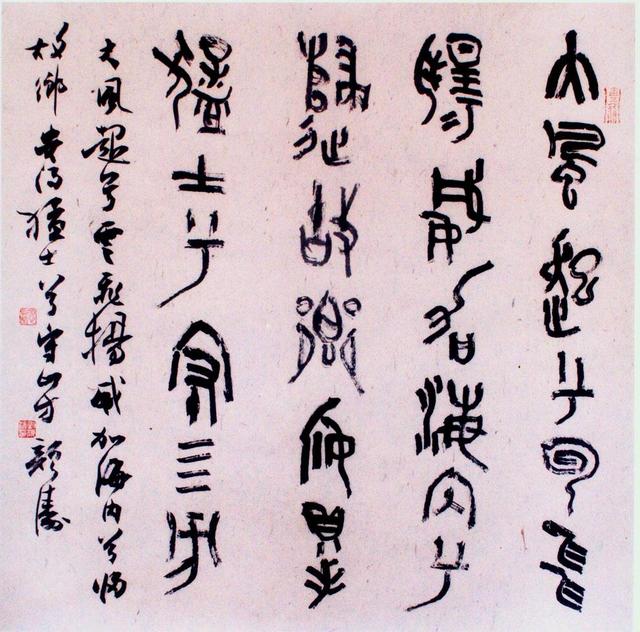 大風起兮雲飛
揚威加海內兮
歸故鄉安得
猛士兮守四方
大風起兮雲飛揚威加海內兮歸
故鄉安得猛士兮守四方 顏濤